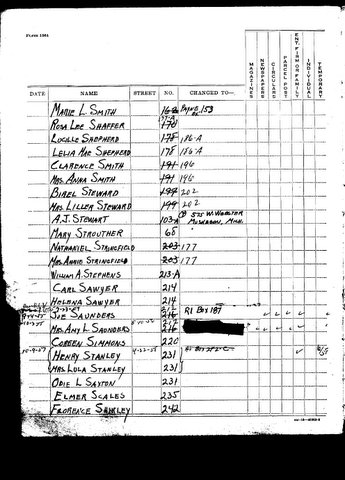 FORM 1564
DATE NAME STREET NO. CHANGED TO— MAGAZINES NEWSPAPERS CIRCULARS PARCEL POST ENT. FIRM OR FAMILY INDIVIDUAL TEMPORARY
MARIE L. SMITH PAYNE 153
ROSA LEE SHAFFER 170
LUCILLE SHEPHERD 178 186-A
LELIA MAE SHEPHERD 178 186-A
CLARENCE SMITH 191 196
MRS. ANNA SMITH 191 196
BIREL STEWARD 199 202
MRS. LILLER STEWARD 199 202
A.J. STEWART 103-A 575 W. WEBSTER
MUSKEGON, MICH.
MARY STROUTHER 68
NATHANIEL STRINGFIELD 203 177
MRS. ANNIE STRINGFIELD 203
WILLIAM A. STEPHENS 213-A
CARL SAWYER 214
HOLENA SAWYER 214
JOE SAUNDERS 216 R1 BOX 187
MRS. AMY L. SAUNDERS 216
COREEN SIMMONS 220
10-9-57 HENRY STANLEY 4-22-58 231
MRS. LULA STANLEY 231
ODIE L. SAXTON 231
ELMER SCALES 235
FLORENCE 242